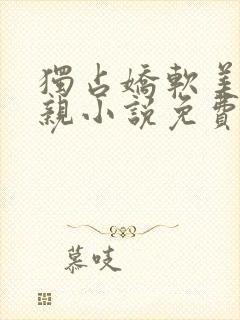 獨占嬌軟美
親小說免費
慕吱